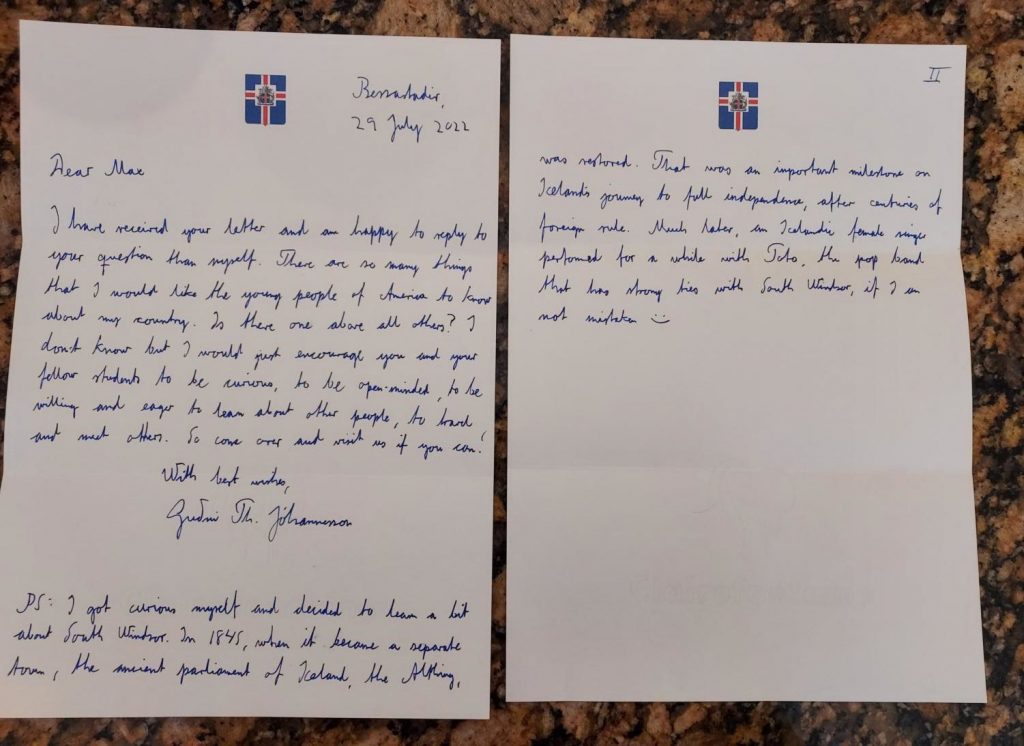 Bessastadir,
29 July 2022
Dear Max
I have received your letter and am happy to reply to
your question than myself. There are so many things
that I would like the young people of America to know
about my country. Is there one above all others? I
don't know but I would just encourage you and your
fellow students to be curious, to be open-minded, to be
willing and eager to learn about other people, to travel
and meet others. So come over and visit us if you can!
With best wishes,
Gudni Th. Jóhannesson
PS: I got curious myself and decided to learn a bit
about South Windsor. In 1845, when it became a separate
town, the ancient parliament of Iceland, the Althing,
II
was restored. That was an important milestone on
Iceland's journey to full independence, after centuries of
foreign rule. Much later, an Icelandic female singer
performed for a while with Toto, the pop band
that has strong ties with South Windsor, if I am
not mistaken :)